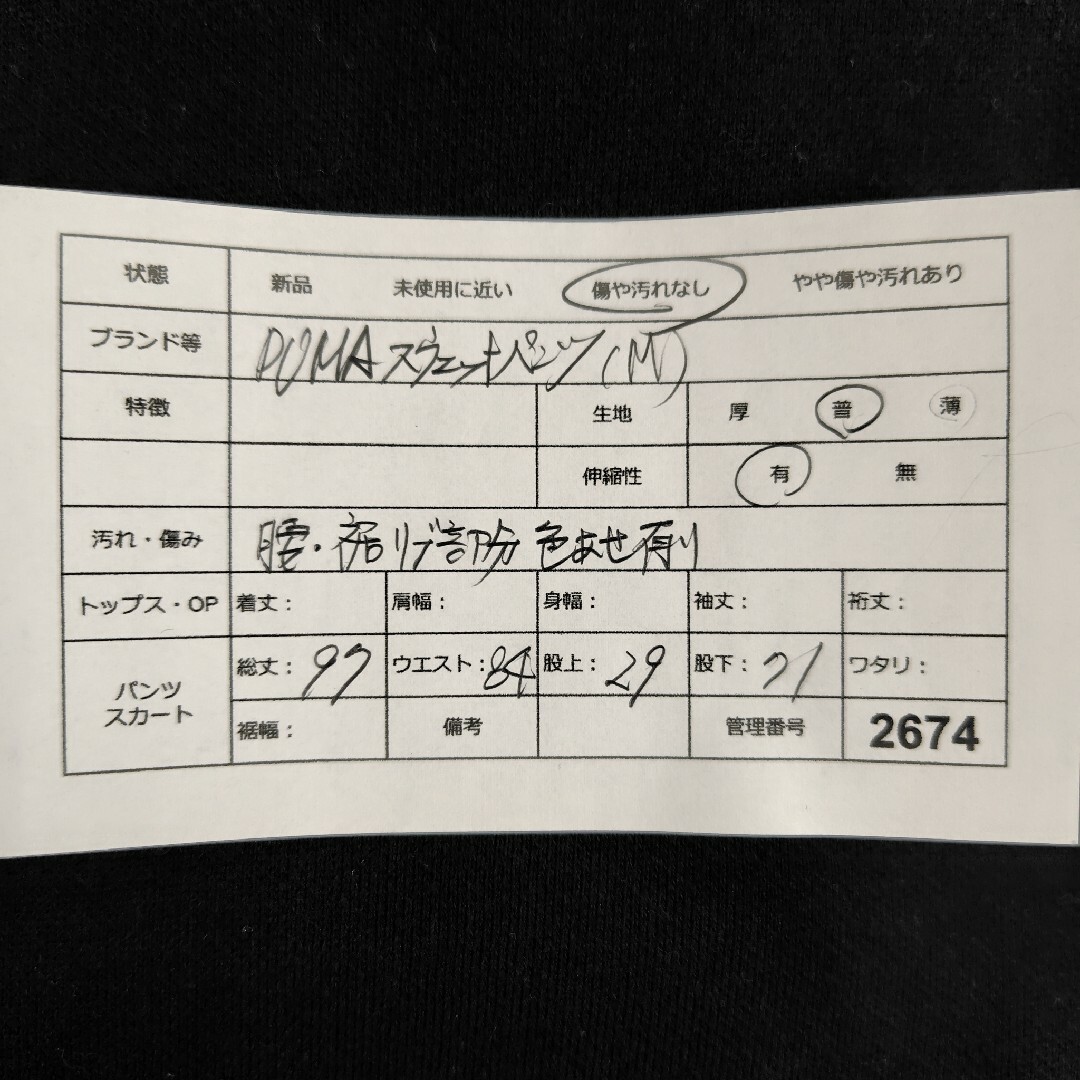 状態 新品 未使用に近い 傷や汚れなし やや傷や汚れあり
ブランド等 PUMA スウェットパンツ (M)
特徴 生地 厚 普 薄
伸縮性 有 無
汚れ・傷み 腰・裾リブ部分 色あせ有り
トップス・OP 着丈: 肩幅: 身幅: 袖丈: 裄丈:
パンツ スカート 総丈: 97 ウエスト: 84 股上: 29 股下: 71 ワタリ:
裾幅: 備考 管理番号 2674